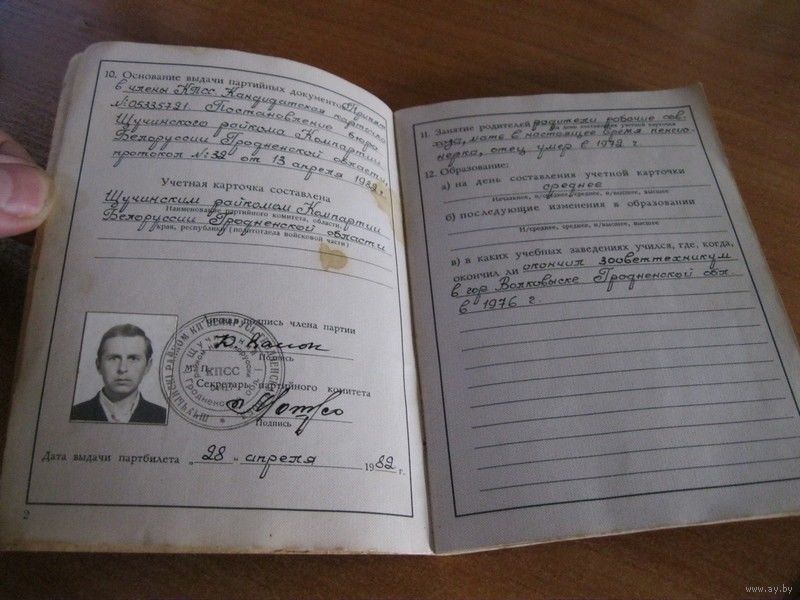 10. Основание выдачи партийных документов Принят
в члены КПСС. Кандидатская карточка
№05335721. Постановление бюро
Щучинского райкома Компартии
Белоруссии Гродненской области
протокол №32 от 13 апреля 1982 г.
Учетная карточка составлена
Щучинским райкомом Компартии
Наименование партийного комитета, области,
Белоруссии Гродненской области
края, республики (политотдела войсковой части)
Личная подпись члена партии
Подпись
М. П.
КПСС
Секретарь партийного комитета
Подпись
Дата выдачи партбилета „28" апреля 1982 г.
2
11. Занятие родителей родители рабочие сов-
на день составления учетной карточки
хоза, мать в настоящее время пенсио-
нерка, отец умер в 1972 г.
12. Образование:
а) на день составления учетной карточки
среднее
Начальное, н/среднее, среднее, н/высшее, высшее
б) последующие изменения в образовании
Н/среднее, среднее, н/высшее, высшее
в) в каких учебных заведениях учился, где, когда,
окончил ли окончил зооветтехникум
в гор Волковыске Гродненской обл.
в 1976 г.
www.ay.by